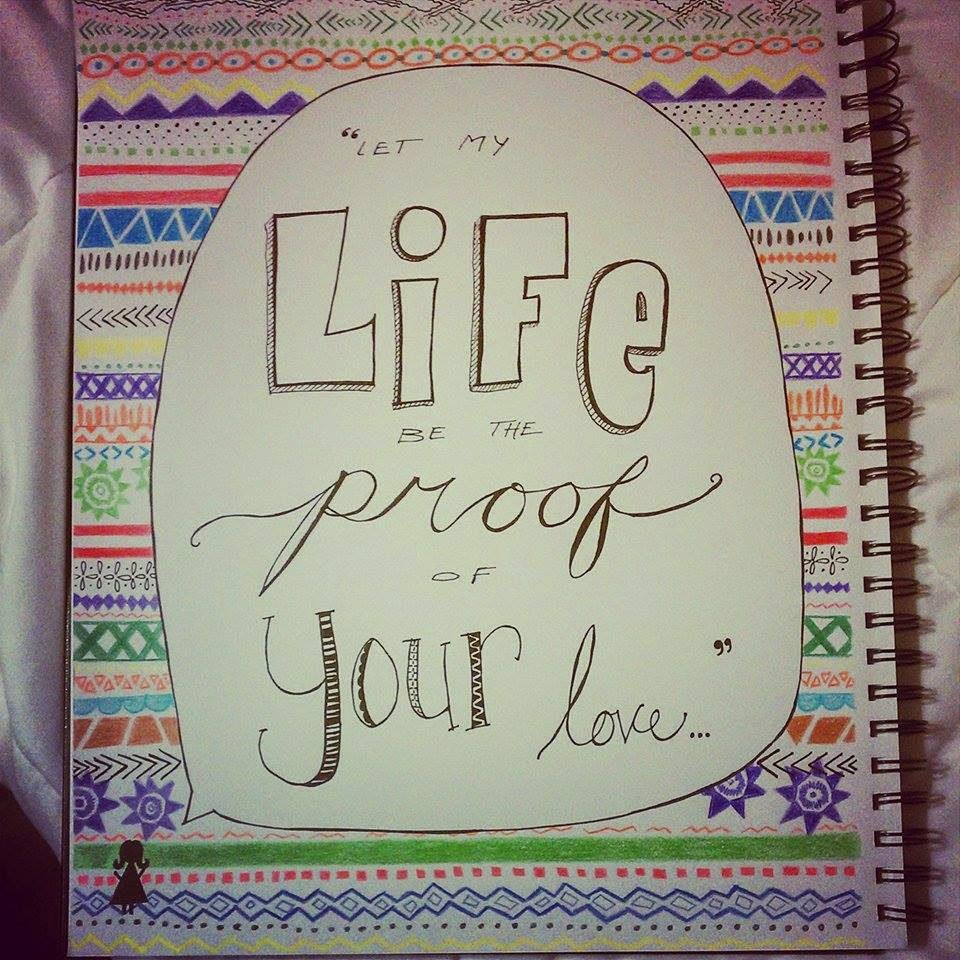 “LET MY
LiFe
BE THE
proof
OF
your love...”